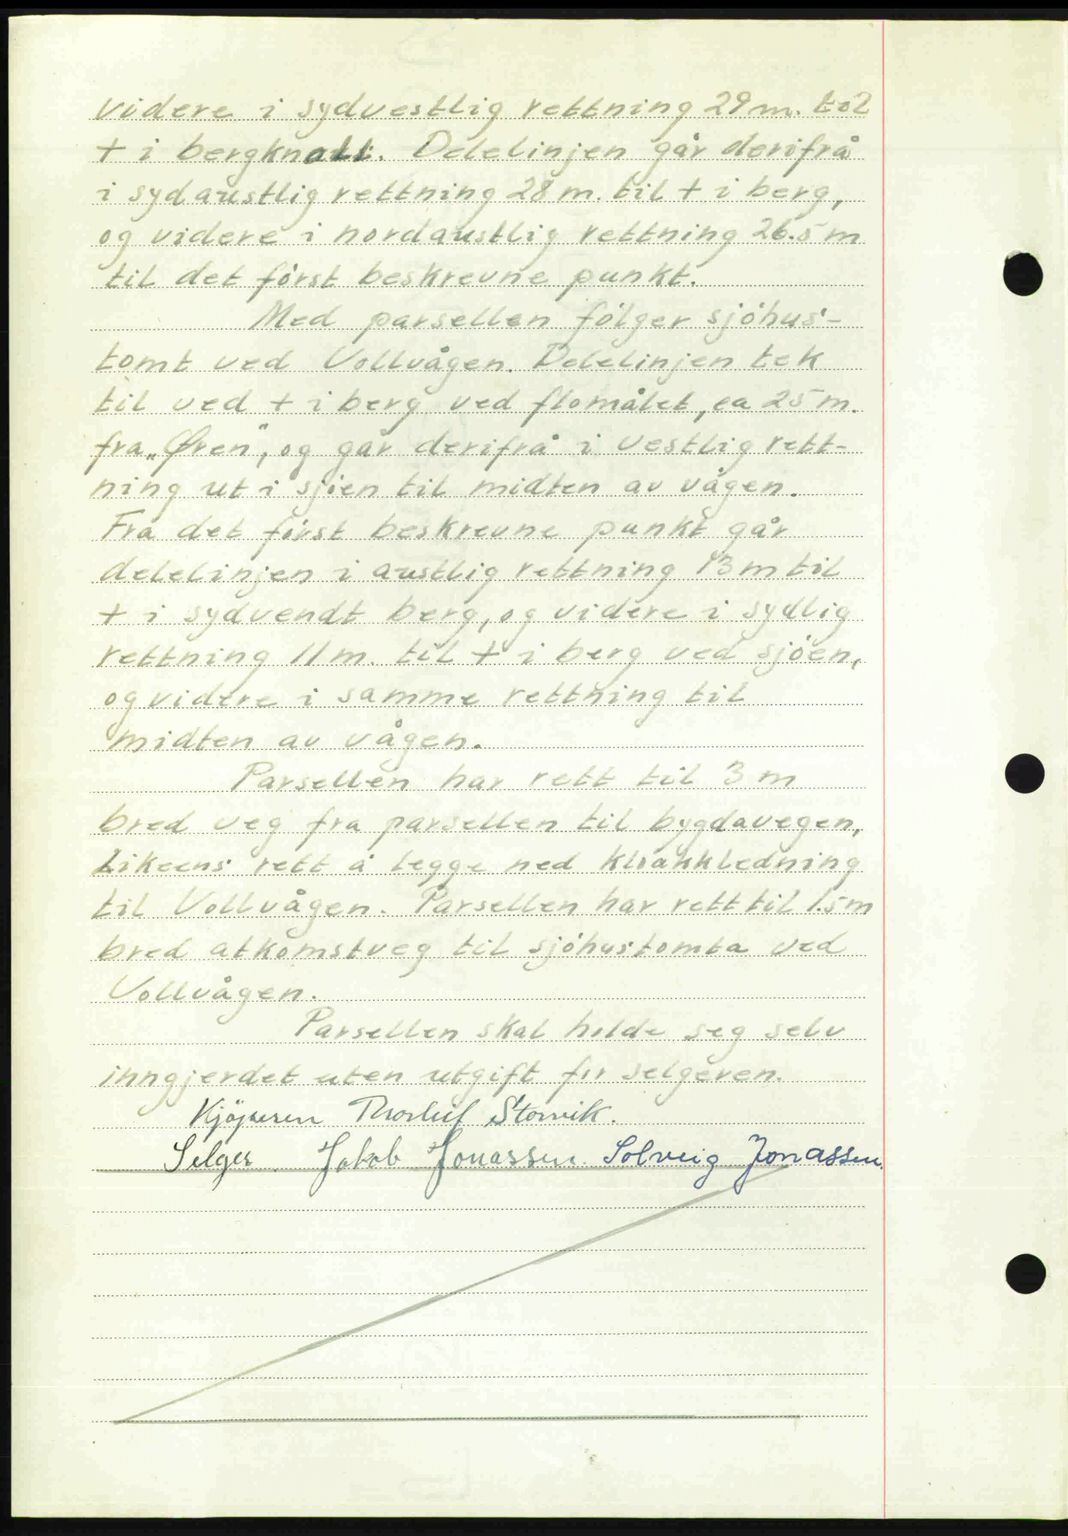 videre i sydvestlig rettning 29 m. til
+ i bergknatt. Delelinjen går derifrå
i sydaustlig rettning 28 m. til + i berg,
og videre i nordaustlig rettning 26.5 m
til det först beskrevne punkt.
Med parsellen fölger sjöhus-
tomt ved Vollvågen. Delelinjen tek
til ved + i berg ved flomålet, ca 25 m.
fra „Øren", og går derifrå i vestlig rett-
ning ut i sjöen til midten av vågen.
Fra det först beskrevne punkt går
delelinjen i austlig rettning 13 m til
+ i sydvendt berg, og videre i sydlig
rettning 11 m. til + i berg ved sjöen,
og videre i samme rettning til
midten av vågen.
Parsellen har rett til 3 m
bred veg fra parsellen til bygdavegen,
Likeens rett å legge ned kloakkledning
til Vollvågen. Parsellen har rett til 1.5 m
bred atkomstveg til sjöhustomta ved
Vollvågen.
Parsellen skal holde seg selv
inngjerdet uten utgift for selgeren.
Kjöperen Thorleif Storvik.
Selger Jakob Jonassen. Solveig Jonassen.